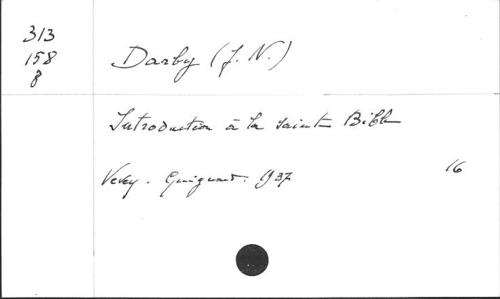 313
158
8
Darby (J. N.)
Introduction à la sainte Bible
Vevey. Guignard. 1937
16